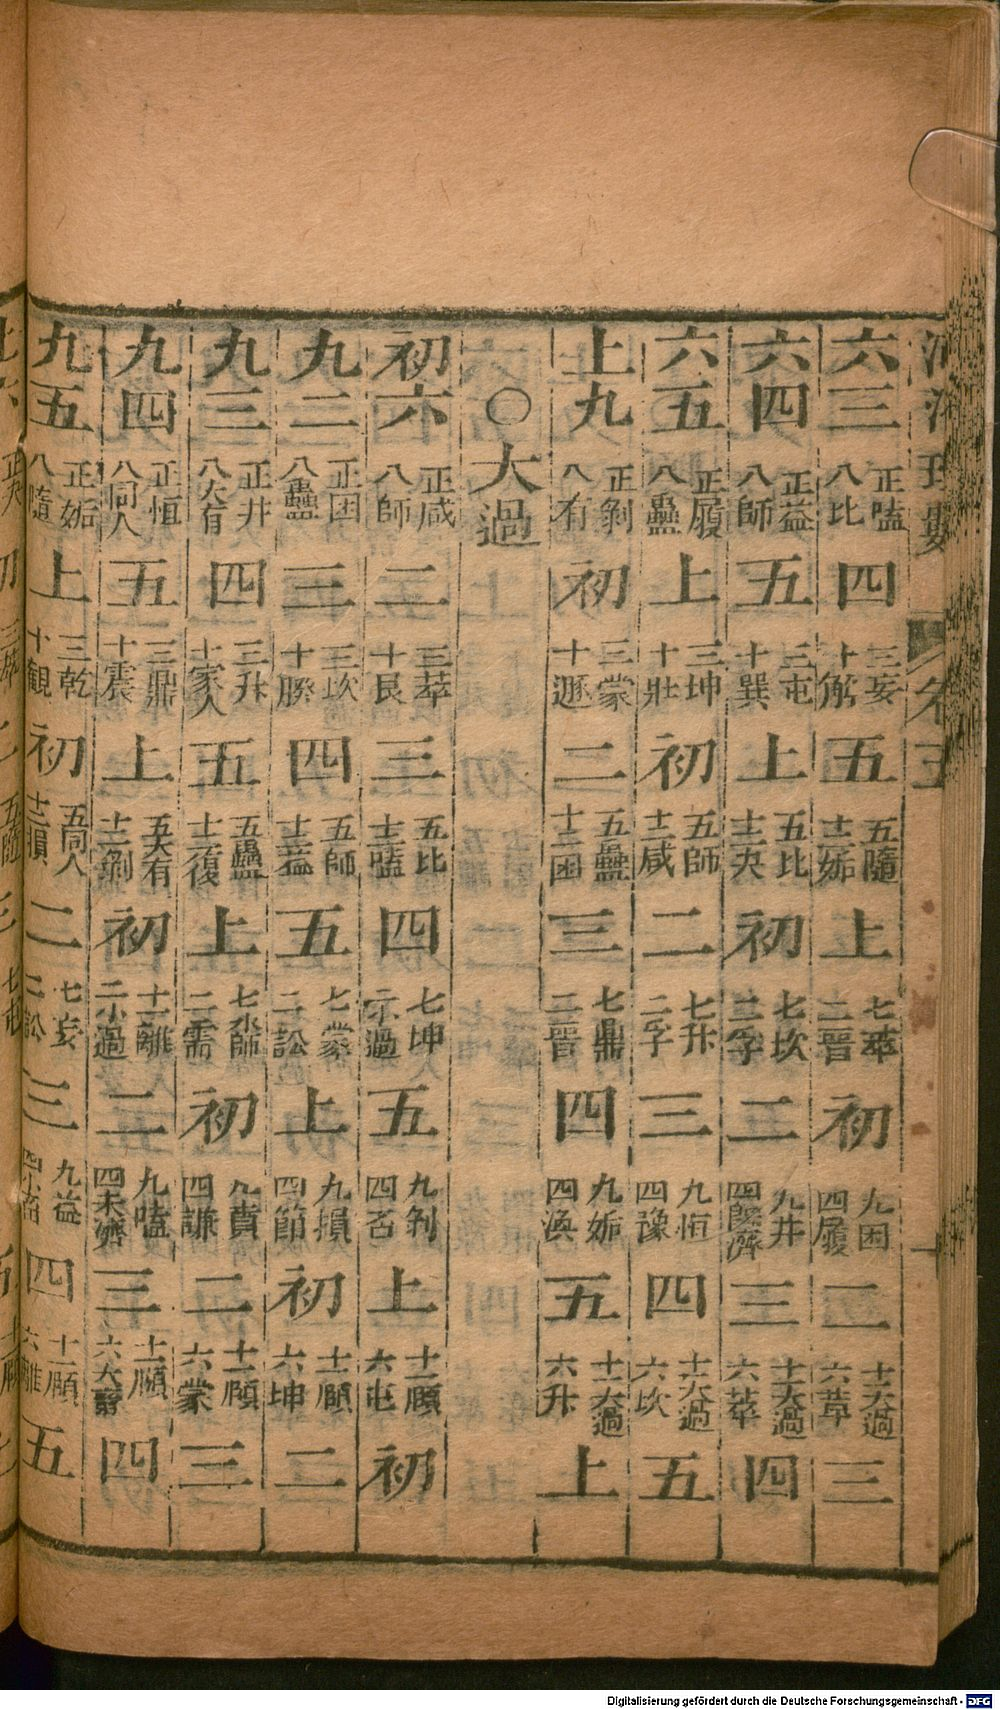 六三 正嗑 八比 四 三妄 十解 五 五隨 十二姤 上 七萃 二晉 初 九困 四履 二 十一大過 六革 三
六四 正益 八師 五 三屯 十巽 上 五比 十二夬 初 七坎 二孚 二 九井 四旣濟 三 十一大過 六萃 四
六五 正履 八蠱 上 三坤 十壯 初 五師 十二咸 二 七升 二孚 三 九恒 四豫 四 十一大過 六坎 五
上九 正剝 八有 初 三蒙 十遯 二 五蠱 十二困 三 七鼎 二晉 四 九姤 四渙 五 十一大過 六升 上
○大過
初六 正咸 八師 二 三萃 十艮 三 五比 十二嗑 四 七坤 二小過 五 九剝 四否 上 十一頤 六屯 初
九二 正困 八蠱 三 三坎 十睽 四 五師 十二益 五 七蒙 二訟 上 九損 四節 初 十一頤 六坤 二
九三 正井 八大有 四 三升 十家人 五 五蠱 十二復 上 七師 二需 初 九賁 四謙 二 十一頤 六蒙 三
九四 正恒 八同人 五 三鼎 十震 上 五大有 十二剝 初 十一離 二小過 二 九嗑 四未濟 三 十一頤 六大壯 四
九五 正姤 八隨 上 三乾 十觀 初 五同人 十二損 二 七妄 二訟 三 九益 四小畜 四 十一頤 六離 五
卷五
十
Digitalisierung gefördert durch die Deutsche Forschungsgemeinschaft - DFG